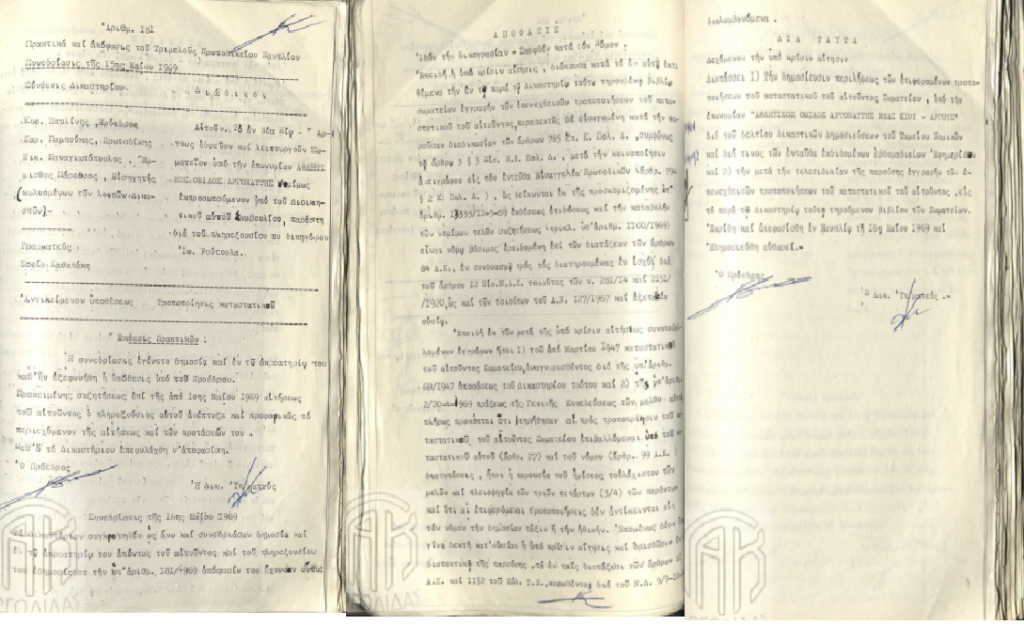 Ἀριθμ. 181
Πρακτικά καί ἀπόφασις τοῦ Τριμελοῦς Πρωτοδικείου Ναυπλίου
Συνεδρίασις τῆς 15ης Μαΐου 1969
Σύνθεσις Δικαστηρίου
Διάδικοι
Καρ. Παυλίνης, Πρόεδρος
Καρ. Παμπούκης, Πρωτοδίκης
Νικ. Παναγιωτόπουλος, Ἔμ-
μισθος Πάρεδρος, Εἰσηγητής
(κωλυομένων τῶν λοιπῶν Δικα-
στῶν)-
Γραμματεύς
Σοφία Κασκπάκη
Αἰτοῦν. Τό ἐν Νέᾳ Κίῳ - Ἄρ-
γους ἑδρεῦον καί λειτουργοῦν Σω-
ματεῖον ὑπό τήν ἐπωνυμίαν ΑΘΛΗΤΙ
ΚΟΣ ΟΜΙΛΟΣ ΑΡΓΟΝΑΥΤΗΣ νομίμως
ἐκπροσωπούμενον ὑπό τοῦ Διοικη-
τικοῦ αὐτοῦ Συμβουλίου, παρέστη
διά τοῦ πληρεξουσίου του δικηγόρου
Ἰω. Ρούτουλα.
Ἀντικείμενον ὑποθέσεως Τροποποίησις καταστατικοῦ
Ἔκθεσις Πρακτικῶν :
Ἡ συνεδρίασις ἐγένετο δημοσίᾳ καί ἐν τῷ ἀκροατηρίῳ του
καθ' ἥν ἐξεφωνήθη ἡ ὑπόθεσις ὑπό τοῦ Προέδρου.
Προκειμένης συζητήσεως ἐπί τῆς ἀπό 1ης Μαΐου 1969 αἰτήσεως
τοῦ αἰτοῦντος ὁ πληρεξούσιος αὐτοῦ ἀνέπτυξε καί προφορικῶς τό
περιεχόμενον τῆς αἰτήσεως καί τῶν προτάσεών του.
Μεθ' ὅ τό Δικαστήριον ἐπεφυλάχθη ν' ἀποφασίσῃ.
Ὁ Πρόεδρος
Ἡ Δικ. Ὑπ/ματεύς
Συνεδρίασις τῆς 16ης Μαΐου 1969
Τό Δικαστήριον συγκροτηθέν ὡς ἄνω καί συνεδριάσαν δημοσίᾳ καί
ἐν τῷ ἀκροατηρίῳ του ἀπόντος τοῦ αἰτοῦντος καί τοῦ πληρεξουσίου
του ἐδημοσίευσε τήν ὑπ' ἀριθμ. 181/1969 ἀπόφασίν του ἔχουσαν οὕτω:
ΑΠΟΦΑΣΙΣ
Ἰδόν τήν δικογραφίαν - Σκεφθέν κατά τόν Νόμον.
Ἐπειδή ἡ ὑπό κρίσιν αἴτησις, διώκουσα κατά τά ἐν αὐτῇ ἐκτι
θέμενα τήν ἐν τῷ παρά τῷ Δικαστηρίῳ τούτῳ τηρουμένῳ βιβλίῳ
σωματείων ἐγγραφήν τῶν ἐπενεχθεισῶν τροποποιήσεων τοῦ κατα-
στατικοῦ τοῦ αἰτοῦντος, παραδεκτῶς δέ εἰσαγομένη κατά τήν πα-
ροῦσαν διαδικασίαν τῶν ἄρθρων 785 ἑπ. Κ. Πολ. Δ., συμφώνως
τῷ ἄρθρῳ 3 § 3 Εἰσ. Ν.Κ. Πολ. Δ., μετά τήν κοινοποίησιν
ἀντιγράφου εἰς τόν ἐνταῦθα Εἰσαγγελέα Πρωτοδικῶν (ἄρθρ. 994
§ 2 Κ. Πολ. Δ.), ὡς δείκνυται ἐκ τῆς προσκομιζομένης ὑπ'
ἀριθμ. 13333/12-5-69 ἐκθέσεως ἐπιδόσεως καί τήν καταβολήν
τῶν νομίμων τελῶν συζητήσεως (τριπλ. ὑπ' ἀριθμ. 1100/1969)
εἶναι νόμῳ βάσιμος ἐρειδομένη ἐπί τῶν διατάξεων τῶν ἄρθρων
84 Α.Κ., ἐν συνδυασμῷ πρός τάς διατηρουμένας ἐν ἰσχύϊ διά
τοῦ ἄρθρου 12 Εἰσ.Ν.Α.Κ. τοιαύτας τῶν ν. 281/14 καί 2151
/1920, ὡς καί τῶν τοιούτων τοῦ Α.Ν. 127/1967 καί ἐξεταστέα
οὐσίᾳ.
Ἐπειδή ἐκ τῶν μετά τῆς ὑπό κρίσιν αἰτήσεως συνυποβαλ-
λομένων ἐγγράφων ἤτοι 1) τοῦ ἀπό Μαρτίου 1947 καταστατικοῦ
τοῦ αἰτοῦντος Σωματείου, ἀναγνωρισθέντος διά τῆς ὑπ' ἀριθμ.
69/1947 ἀποφάσεως τοῦ Δικαστηρίου τούτου καί 2) τῆς ὑπ' ἀριθμ.
2/20-4-1969 πράξεως τῆς Γενικῆς Συνελεύσεως τῶν μελῶν αὐτοῦ
πλήρως προκύπτει ὅτι ἐτηρήθησαν αἱ πρός τροποποίησιν τοῦ κα
ταστατικοῦ τοῦ αἰτοῦντος Σωματείου ἐπιβαλλόμεναι ὑπό τοῦ κα-
ταστατικοῦ αὐτοῦ (ἄρθρ. 27) καί τοῦ νόμου (ἄρθρ. 99 Α.Κ.)
διατυπώσεις, ἤτοι ἡ παρουσία τοῦ ἡμίσεος τοὐλάχιστον τῶν
μελῶν καί πλειοψηφία τῶν τριῶν τετάρτων (3/4) τῶν παρόντων
καί ὅτι αἱ ἐπιφερόμεναι τροποποιήσεις δέν ἀντίκεινται εἰς
τόν νόμον τήν δημοσίαν τάξιν ἤ τήν ἠθικήν. Ἑπομένως δέον νά
γίνῃ δεκτή κατ' οὐσίαν ἡ ὑπό κρίσιν αἴτησις καί
διατακτικῷ τῆς παρούσης, τά ἐν ταῖς διατάξεσι τῶν ἄρθρων
Α.Κ. καί 1152 τοῦ Κώδ. Τ.Ν., κυρωθέντος διά τοῦ Ν.Δ.
διαλαμβανόμενα.
ΔΙΑ ΤΑΥΤΑ
Δεχόμενον τήν ὑπό κρίσιν αἴτησιν
Διατάσσει 1) Τήν δημοσίευσιν περιλήψεως τῶν ἐπιφερομένων τροπο-
ποιήσεων τοῦ καταστατικοῦ τοῦ αἰτοῦντος Σωματείου, ὑπό τήν
ἐπωνυμίαν "ΑΘΛΗΤΙΚΟΣ ΟΜΙΛΟΣ ΑΡΓΟΝΑΥΤΗΣ ΝΕΑΣ ΚΙΟΥ - ΑΡΓΟΥΣ"
διά τοῦ δελτίου Δικαστικῶν Δημοσιεύσεων τοῦ Ταμείου Νομικῶν
καί διά τινος τῶν ἐνταῦθα ἐκδιδομένων ἑβδομαδιαίων Ἐφημερίδων
καί 2) τήν μετά τήν τελεσιδικίαν τῆς παρούσης ἐγγραφήν τῶν ἐ-
πενεχθεισῶν τροποποιήσεων τοῦ καταστατικοῦ τοῦ αἰτοῦντος, εἰς
τό παρά τῷ Δικαστηρίῳ τούτῳ τηρούμενον βιβλίον τῶν Σωματείων.
Ἐκρίθη καί ἀπεφασίσθη ἐν Ναυπλίῳ τῇ 16ῃ Μαΐου 1969 καί
ἐδημοσιεύθη αὐθωρεί.-
Ὁ Πρόεδρος
Ἡ Δικ. Ὑπ/ματεύς.-